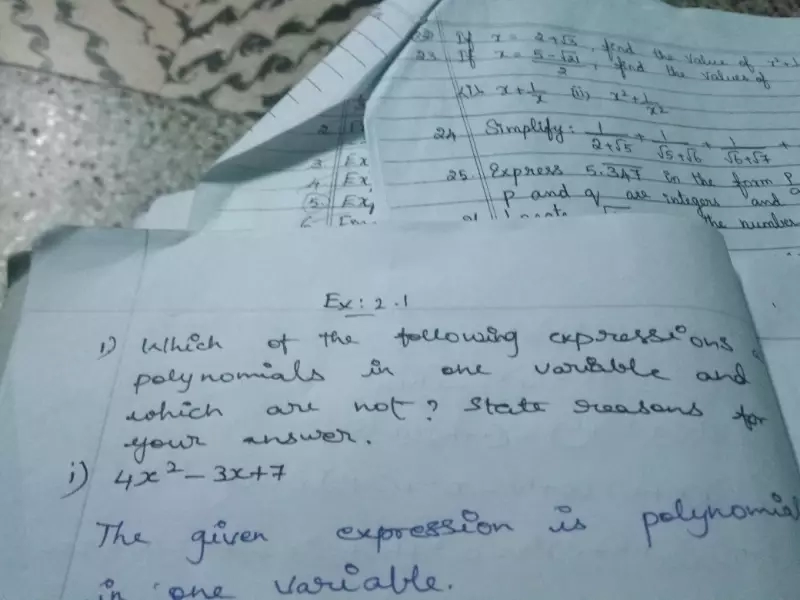 22 If x = 2+√3, find the value of x²+1
23. If x = 5-√21/2, find the values of
(i) x+1/x (ii) x²+1/x²
24 Simplify: 1/2+√5 + 1/√5+√6 + 1/√6+√7 +
25. Express 5.347 in the form P
p and q are integers and
the number
2
3 Ex
4 Ex
5. Ex
6
Ex: 2.1
1) Which of the following expressions
polynomials in one variable and
which are not? State reasons for
your answer.
i) 4x² - 3x+7
The given expression is polynomial
in one variable.